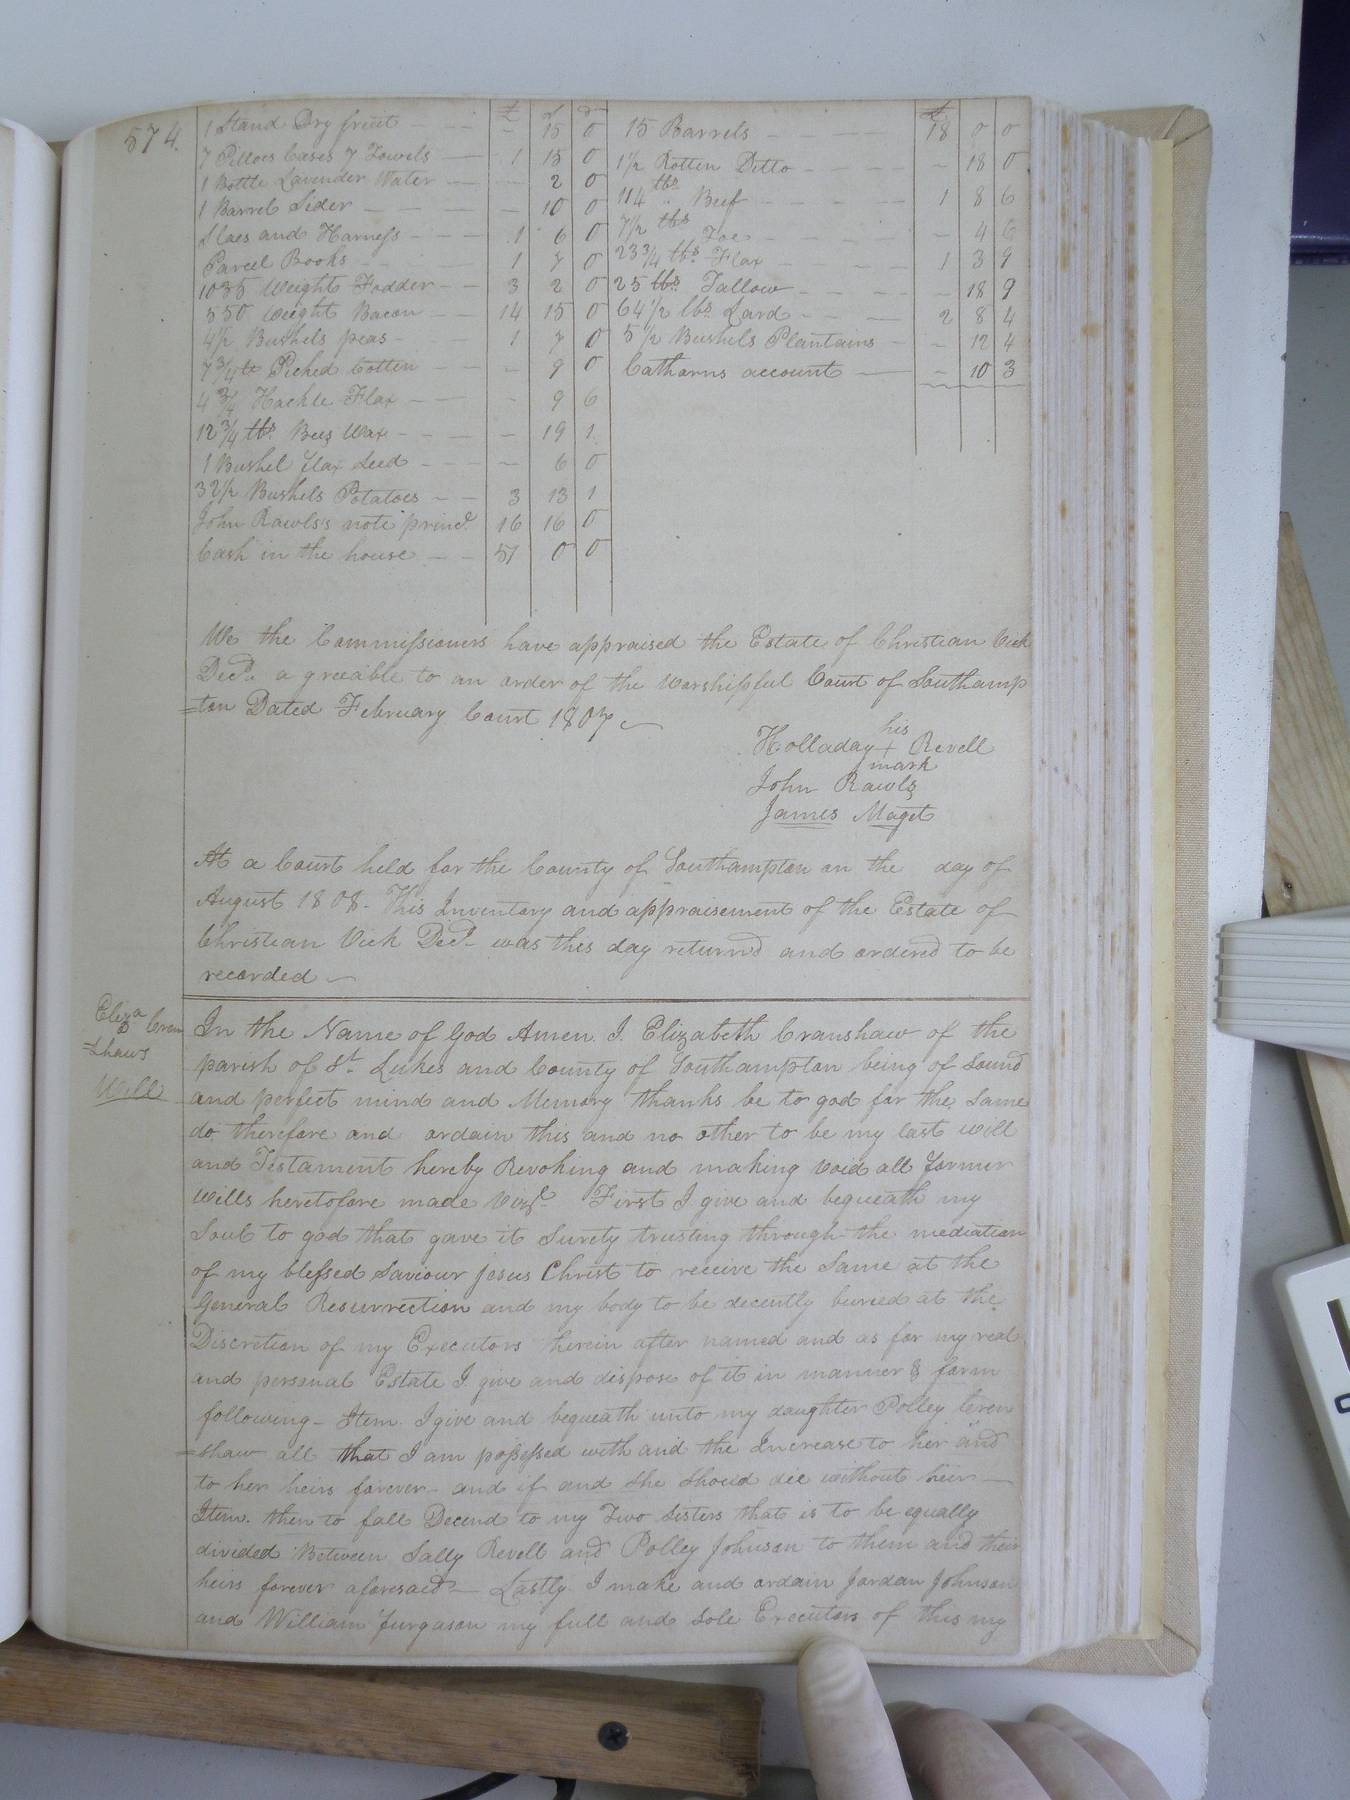 574.
£ S D
1 Stand Dry fruit - - - - 15 0
7 Pilloes Cases 7 Towels - 1 15 0
1 Bottle Lavender Water - - - 2 0
1 Barrel Sider - - - - 10 0
Slaes and Harness - - 1 6 0
Parcel Books - - - 1 7 0
1035 Weight Fodder - - 3 2 0
550 Weight Bacon - - 14 15 0
4 1/2 Bushels peas - - 1 7 0
7 3/4 lb Picked Cotten - - - 9 0
4 3/4 Hackle Flax - - - 9 6
12 3/4 lbs. Bees Wax - - - - 19 1
1 Bushel flax Seed - - - - 6 0
32 1/2 Bushels Potatoes - - 3 13 1
John Rawls's note princl. 16 16 0
Cash in the house - - 51 0 0
£
15 Barrels - - - - 18 0 0
1 1/2 Rotten Ditto - - - - - 18 0
114 lbs " Beef - - - - 1 8 6
7 1/2 lbs Toe - - - - - 4 6
23 3/4 lbs. Flax - - - 1 3 9
25 lbs. Tallow - - - - - 18 9
64 1/2 lbs. Lard - - - 2 8 4
5 1/2 Bushels Plantains - - 12 4
Catharns account - - 10 3
We the Commissioners have appraised the Estate of Christian Vick
Decd. a greeable to an order of the Worshipful Court of Southamp
=ton Dated February Court 1807
his
Holladay + Revell
mark
John Rawls
James Maget
At a Court held for the County of Southampton on the day of
August 1808. This Inventory and appraisement of the Estate of
Christian Vick Decd. was this day returnd and ordered to be
recorded
Eliza Cren
=shaws
Will
In the Name of God Amen. I. Elizabeth Cranshaw of the
parish of St. Lukes and County of Southampton being of Sound
and perfect mind and Memory thanks be to god for the Same
do therefore and ordain this and no other to be my last will
and Testament hereby Revoking and making void all former
Wills heretofore made Vizt. First I give and bequeath my
Soul to god that gave it Surety trusting through the mediation
of my blessed Saviour jesus Christ to receive the Same at the
General Resurrection and my body to be decently buried at the
Discretion of my Executors herein after named and as for my real
and personal Estate I give and dispose of it in manner & form
following - Item. I give and bequeath unto my daughter Polley Cren
=shaw all that I am possessed with and the Increase to her and
to her heirs forever - and if and She should die without heir -
Item. then to fall Decend to my Two Sisters that is to be equally
divided Between Sally Revell and Polley Johnson to them and their
heirs forever aforesaid - Lastly I make and ordain Jordan Johnson
and William Jurgason my full and Sole Executors of this my